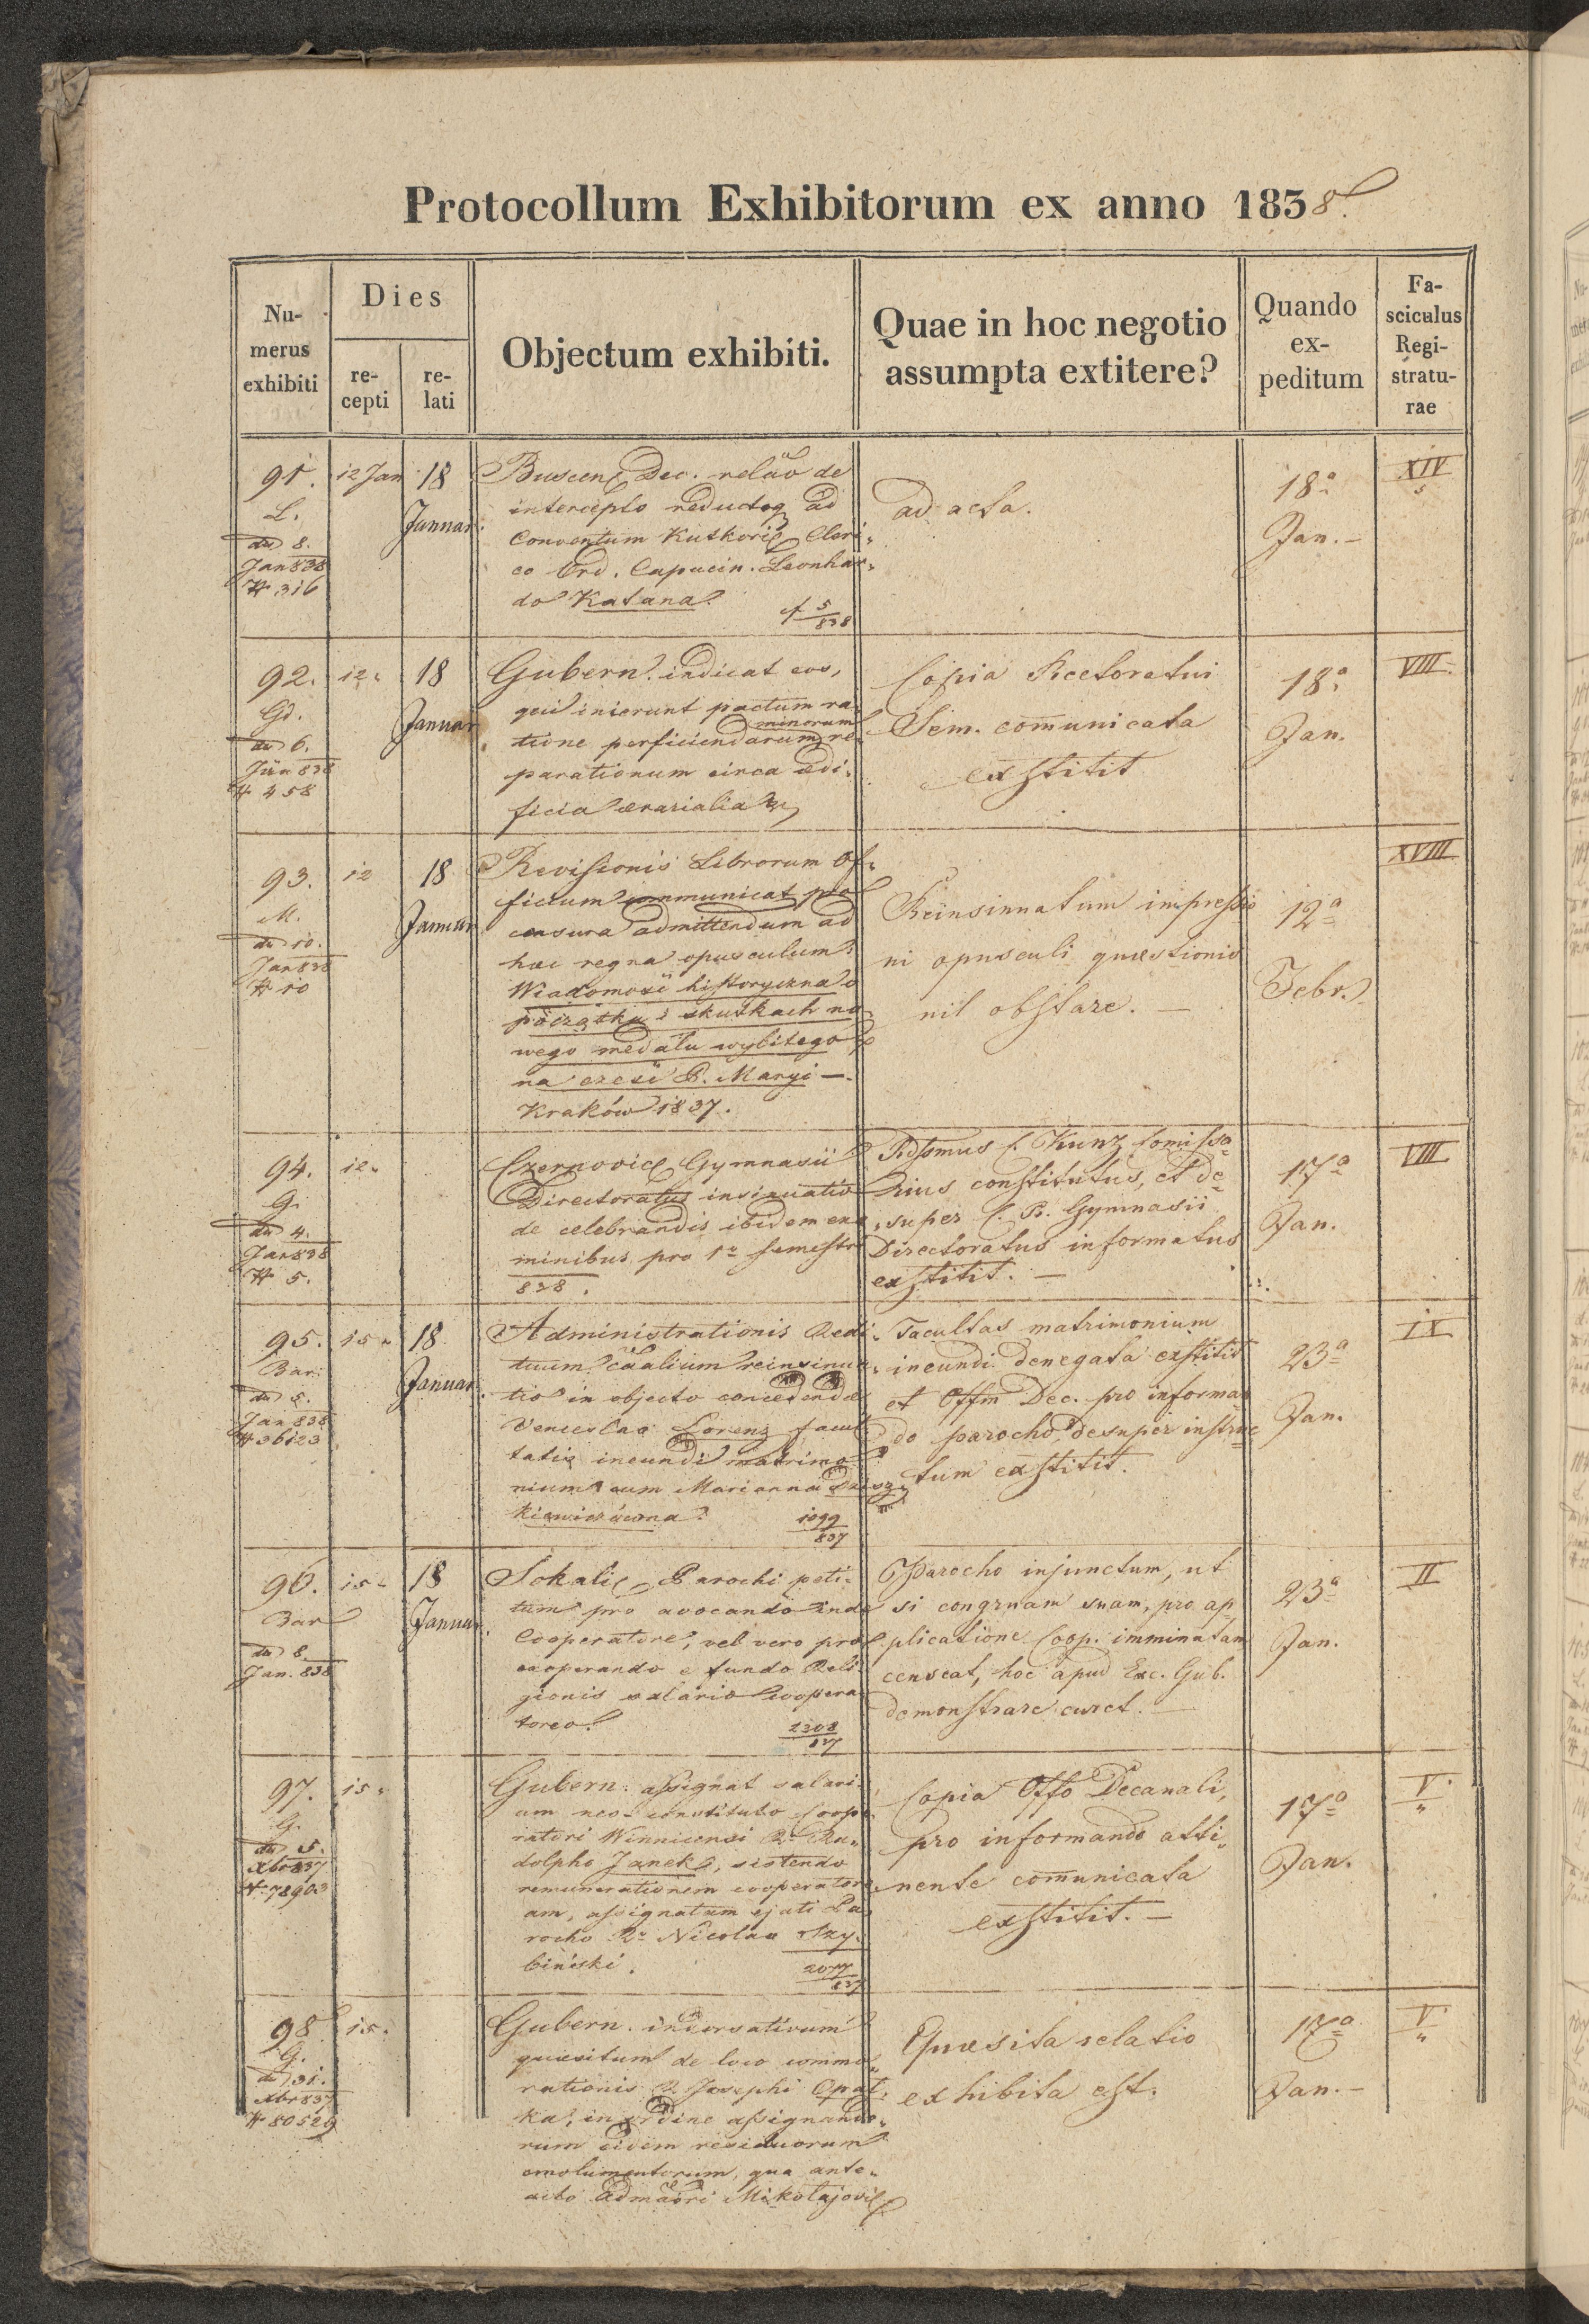 Protocollum Exhibitorum ex anno 1838.
Nu-
merus
exhibiti
Dies
re-
cepti
re-
lati
Objectum exhibiti.
Quae in hoc negotio
assumpta extitere?
Quando
ex-
peditum
Fa-
sciculus
Regi-
stratu-
rae
91.
L.
dd 8.
Jan 838
№ 316
12 Jan
18
Januar.
Buscen. Dec. relaõ de
intercepto reductoq ad
Conventum Kutkoric Cleri-
co Ord. Capucin. Leonhar-
do Katana.
5
838
ad acta.
18a
Jan.-
XIV
5
92.
Gd.
dd 6.
Jan 838
№ 458
12.
18
Januar.
Gubern. indicat eos,
qui inierunt pactum ra-
minorum
tione perficiendarum re-
parationum circa ædi-
ficia ærarialia
Copia Rectoretui
Sem. comunicata
exstitit
18a
Jan.
VIII.
93.
M.
dd 10.
Jan 838
№ 10
12
18
Januar
Revisionis Librorum Of-
ficium communicat pro
censura admittendum ad
hæc regna opusculum:
Wiadomość historyczna o
początku i skutkach no-
wego medalu wybitego
na cześć P. Maryi —.
Kraków 1837.
Reinsinuatum impressio-
ni opusculi quæstionis
nil obstare. —
12a
Febr.
XVIII
94.
G.
dd 4.
Jan 838
№ 5.
12.
Czernovic Gymnasii
Directoratus insinuatio
de celebrandis ibidem exa-
minibus pro 1o semestri
838.
Rdssmus C. Kunz Comissa-
rius constitutus, et de-
super C. R. Gymnasii
Directoratus informatus
exstitit. —
17a
Jan.
VIII
95.
Bar.
dd 5.
Jan 838
№ 36123
15.
18
Januar.
Administrationis Redi-
tuum caãlium reinsinua-
tio in objecto concedendæ
Venceslao Lorenz facul-
tatis ineundi matrimo-
nium cum Marianna
kiewiczówna.
1099
837
Facultas matrimonium
ineundi denegata exstitit
et Offm Dec. pro informan-
do parocho desuper instruc-
tum exstitit.
23a
Jan.
IX
96.
Bar
dd 8.
Jan. 838
15.
18
Januar.
Sokalic, Parochi peti-
tum pro avocando inde
Cooperatore, vel vero pro
exoperando e fundo Reli-
gionis salario coopera-
toreo.
2308
837
Parocho injunctum, ut
si congruam suam, pro ap-
plicatione Coop. imminutam
censeat, hoc apud Exc. Gub.
demonstrare curet. —
23a
Jan.
II
97.
G.
dd 5.
Xbr 837
№ 78903
15.
Gubern. assignat salari-
um neo-constituto Coope-
ratori Winnicensi Ru-
dolpho Janek, sistendo
remunerationem cooperatore-
am, assignatam ejati Pa-
rocho Nicolao Szy-
biński.
2077
837
Copia Offo Decanali,
pro informando atti-
nente comunicata
exstitit. —
17a
Jan.
V.
"
98.
G.
dd 31.
Xbr 837
№ 80529
15.
Gubern. indorsativum
quæsitum de loco commo-
rationis Josephi Opat-
ka, in ordine assignando-
rum eidem residuorum
emolumentorum, qua ante-
acto Admãori Mikołajovic
Quæsita relatio
exhibita est.
17a
Jan.-
V.
"